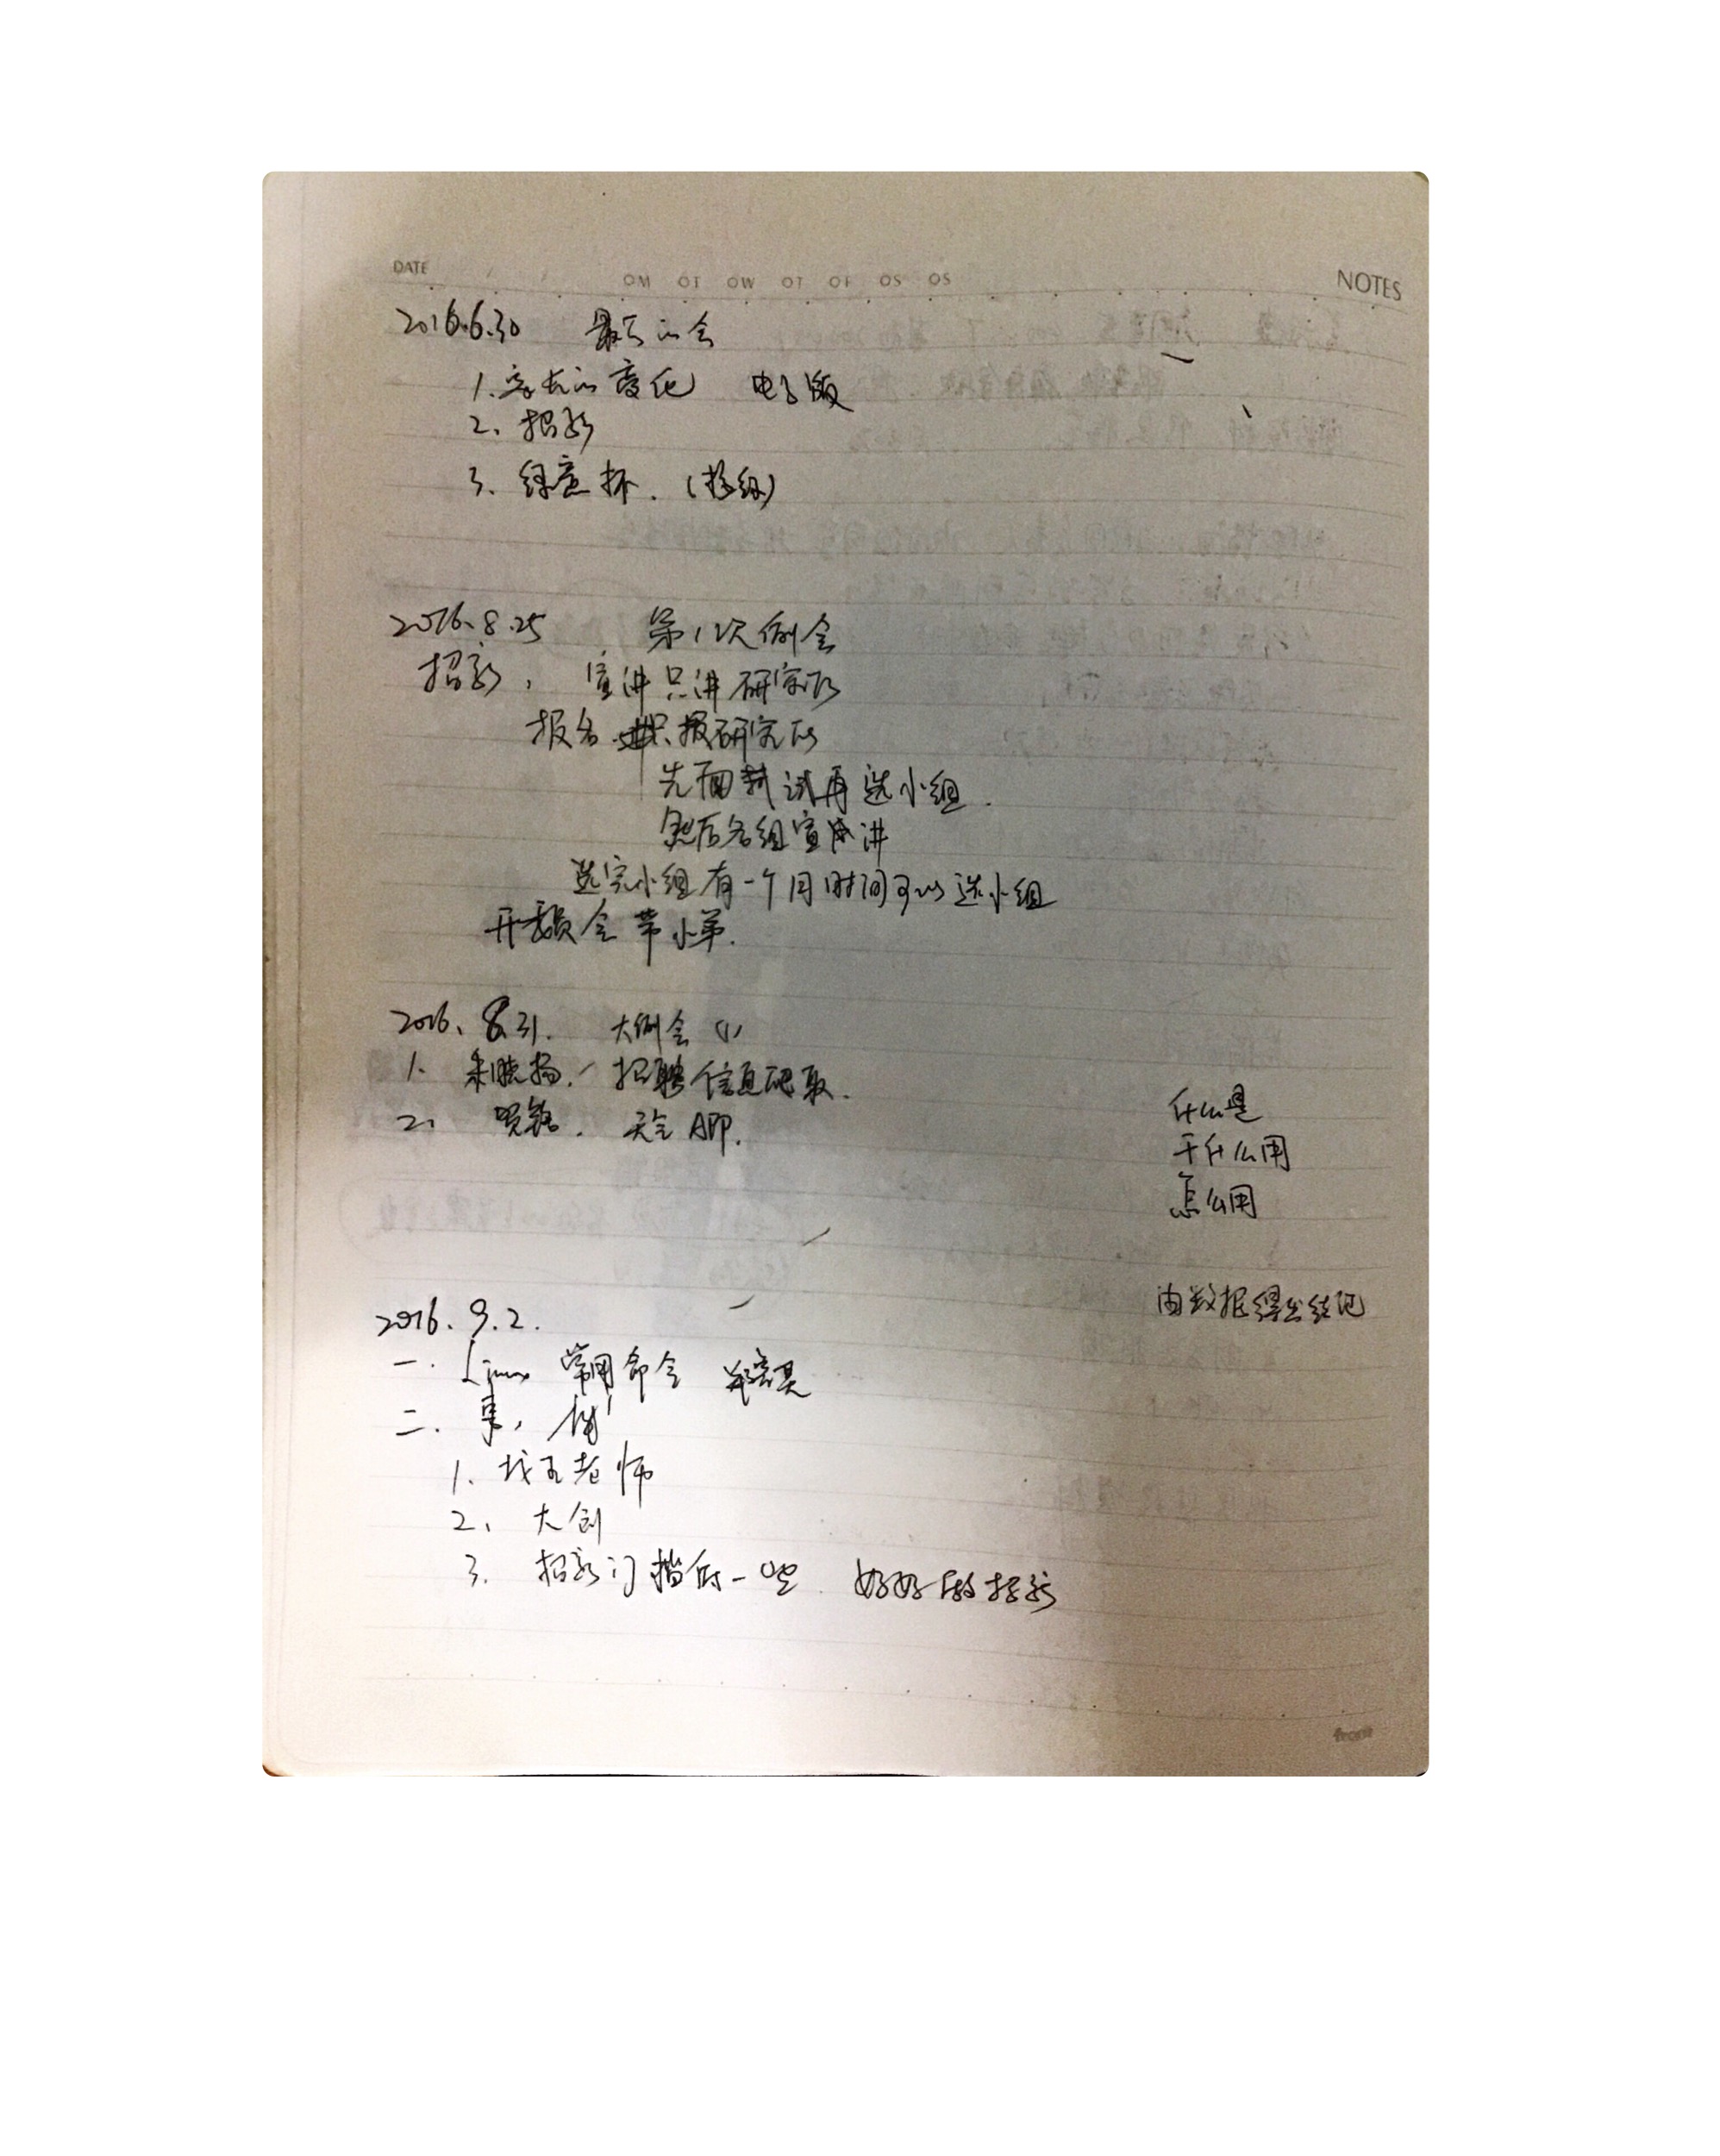 DATE
OM OT OW OT OF OS OS
NOTES
2016.6.30 最后的会
1. 变化 电子版
2. 招新
3. 杯. (组)
2016.8.25 第1次例会
招新, 宣讲只讲研究所
报名 只报研究所
先面试再选小组.
然后各组宣讲
选完小组有一个月时间可以选小组
开会带小弟.
2016.8.31. 大例会(1)
1. 招聘信息爬取.
2. APP.
什么是
干什么用
怎么用
由数据得出结论
2016.9.2.
一. Linux 常用命令
二. 事,
1. 找王老师
2. 大创
3. 招新门槛低一些 好好做招新